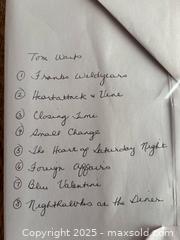 Tom Waits
① Franks Wildyears
② Heartattack & Vine
③ Closing Time
④ Small Change
⑤ The Heart of Saturday Night
⑥ Foreign Affairs
⑦ Blue Valentine
⑧ Nighthawks at the Diner
Copyright 2025 - discogs.com